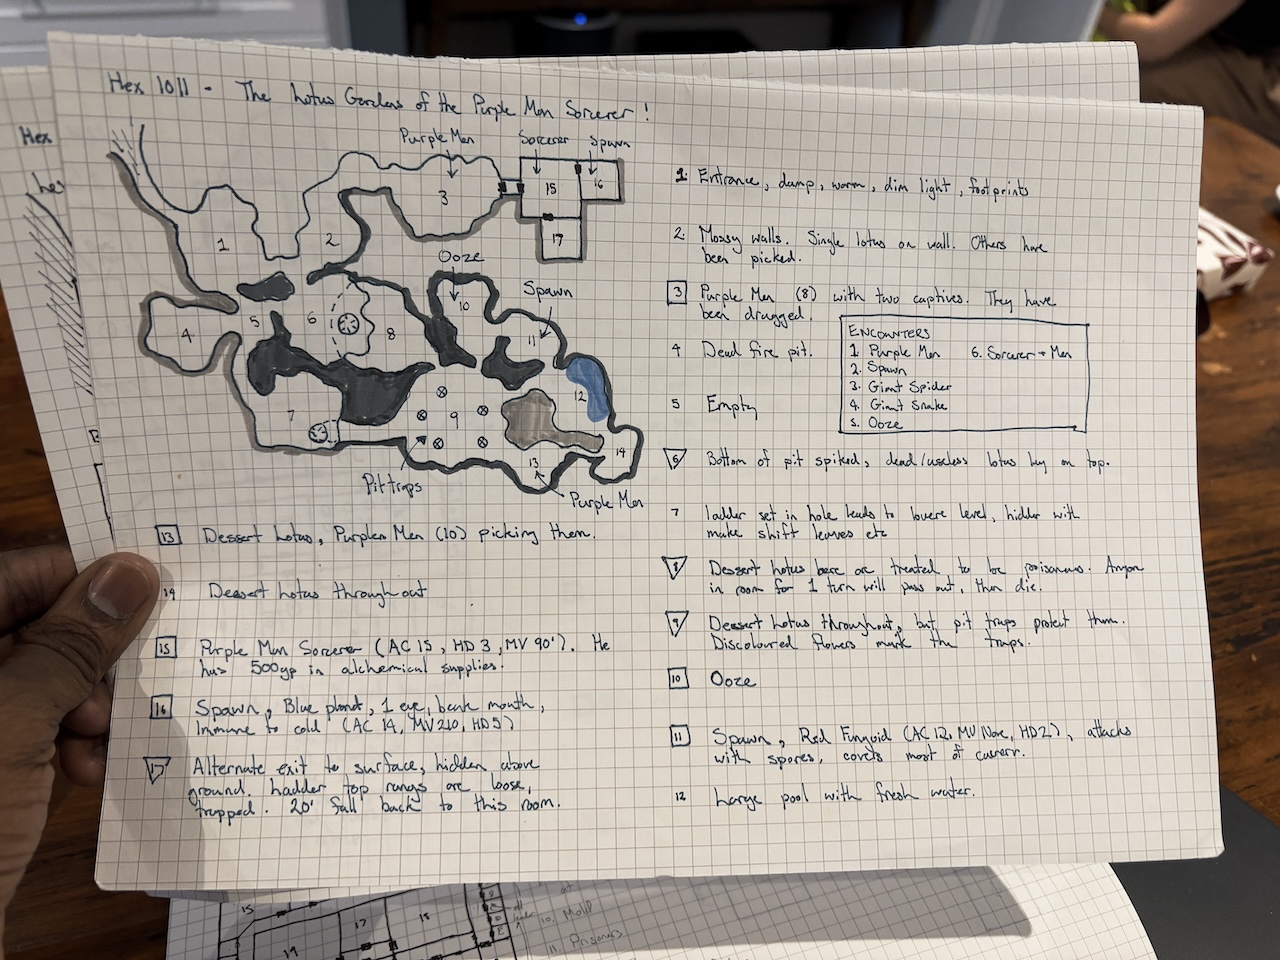 Hex 1011 - The Lotus Gardens of the Purple Men Sorcerer!
Purple Men
Sorcerer
Spawn
1
2
3
15
16
17
Ooze
Spawn
4
5
6
8
10
11
12
7
9
13
14
Pit traps
Purple Men
1. Entrance, damp, warm, dim light, footprints
2. Mossy walls. Single lotus on wall. Others have
been picked.
3 Purple Men (8) with two captives. They have
been drugged.
4 Dead fire pit.
5 Empty
ENCOUNTERS
1. Purple Men
2. Spawn
3. Giant Spider
4. Giant Snake
5. Ooze
6. Sorcerer + Men
6 Bottom of pit spiked, dead/useless lotus lay on top.
7 ladder set in hole leads to lowere level, hidden with
make shift leaves etc
8 Dessert lotus here are treated to be poisonous. Anyon
in room for 1 turn will pass out, then die.
9 Dessert lotus throughout, but pit traps protect them.
Discoloured flowers mark the traps.
10 Ooze
11 Spawn, Red Funguid (AC 12, MV None, HD2), attacks
with spores, covers most of cavern.
12 Large pool with fresh water.
13 Dessert lotus, Purplen Men (10) picking them.
14 Dessert lotus throughout
15 Purple Men Sorcerer (AC 15, HD 3, MV 90'). He
has 500gp in alchemical supplies.
16 Spawn, Blue 1 eye, beak mouth,
Immune to cold (AC 14, MV 210, HD5)
17 Alternate exit to surface, hidden above
ground. Ladder top rungs are loose,
trapped. 20' fall back to this room.
Hex
15
17
18
19
10. Mold
11. Prisoners